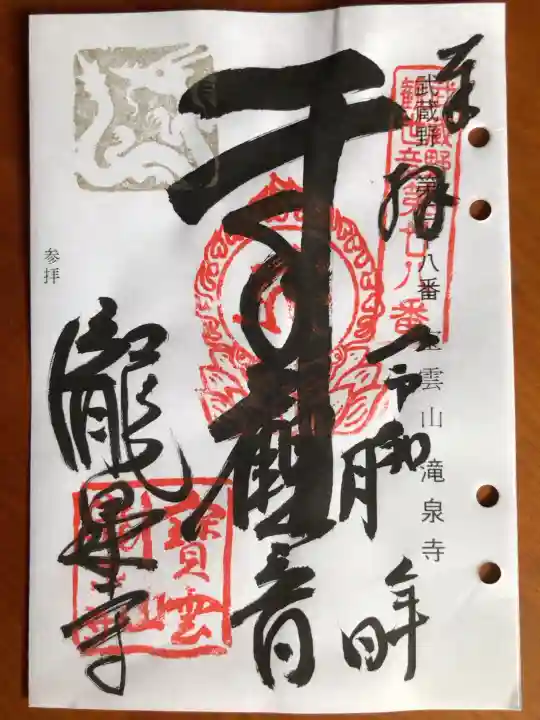 奉拝
武蔵野
観世音第廿八番
武蔵野 第二十八番 宝雲山 滝泉寺
令和 年 月 日
千手観音
寶雲山
瀧泉寺
参拝